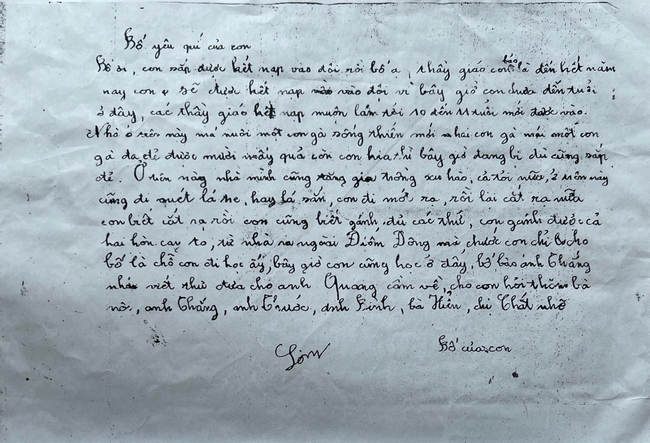 Bố yêu quí của con
Bố ơi, con sắp được kết nạp vào đội rồi bố ạ, thầy giáo con bảo là đến hết năm
nay con sẽ được kết nạp vào đội vì bây giờ con chưa đến tuổi
ở đây, các thầy giáo kết nạp muộn lắm tới 10 đến 11 tuổi mới được vào.
Nhà ở trên này má nuôi một con gà sống thiến mới và hai con gà mái một con
gà đã đẻ được mười mấy quả còn con kia thì bây giờ đang bị dù cũng sắp
đẻ. Ở trên này nhà mình cũng tăng gia trồng xu hào, cà tới nữa, ở trên này
cũng đi quét lá tre, hay lá sắn, con đi mót ra, rồi lại cắt rạ nữa
con biết cắt rạ rồi con cũng biết gánh, đủ các thứ, con gánh được cả
hai hòn cay to, từ nhà ra ngoài Điếm Đông mà trước con chỉ cho
bố là chỗ con đi học ấy, bây giờ con cũng học ở đây, bố bảo anh Thắng
viết thư đưa cho anh Quang cầm về, cho con hỏi thăm bà
nở, anh Thắng, anh Trước, anh Sinh, bà Hiền, chú Chất nhớ
Bố của con